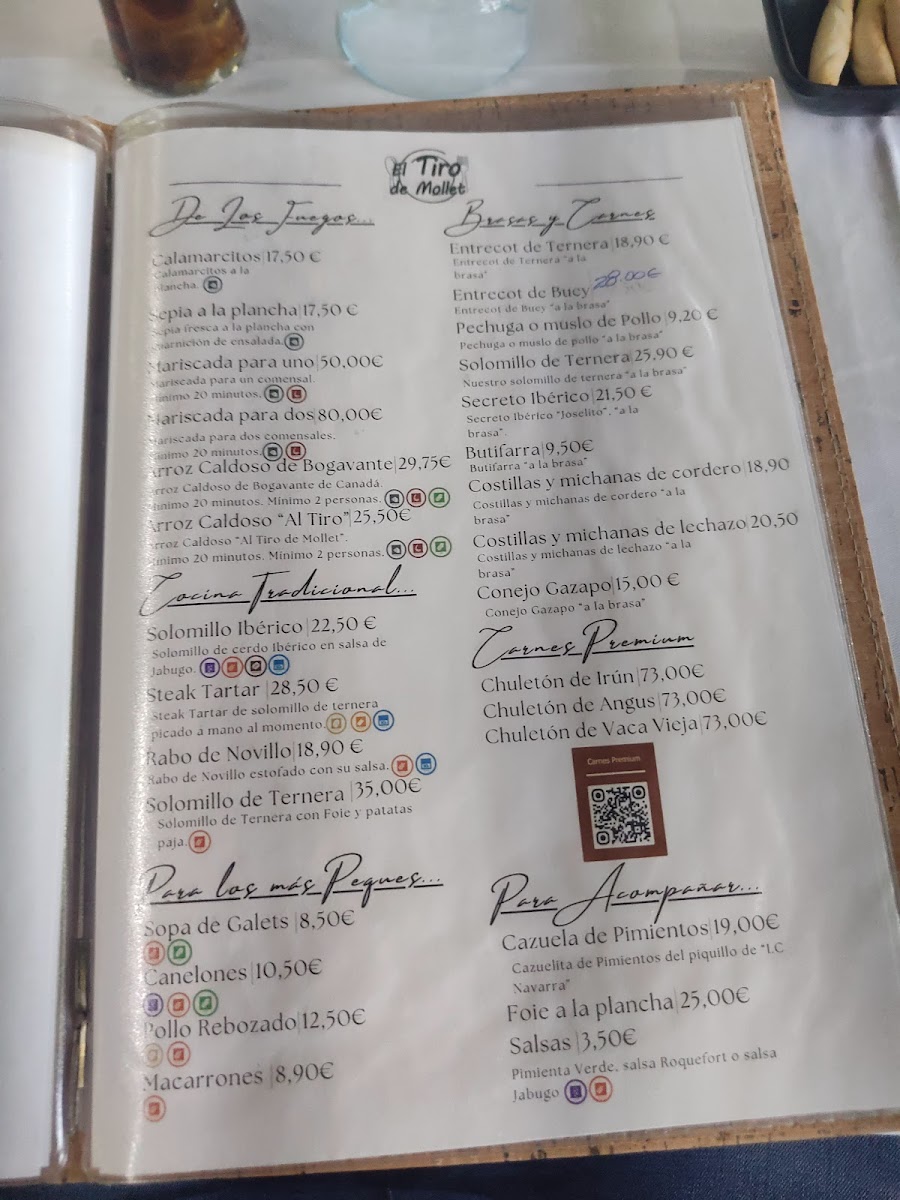 El Tiro
de Mollet
De Los Fuegos...
Calamarcitos|17,50 €
Calamarcitos a la
plancha.
Sepia a la plancha|17,50 €
Sepia fresca a la plancha con
guarnición de ensalada.
Mariscada para uno|50,00€
Mariscada para un comensal.
Mínimo 20 minutos.
Mariscada para dos|80,00€
Mariscada para dos comensales.
Mínimo 20 minutos.
Arroz Caldoso de Bogavante|29,75€
Arroz Caldoso de Bogavante de Canadá.
Mínimo 20 minutos. Mínimo 2 personas.
Arroz Caldoso "Al Tiro"|25,50€
Arroz Caldoso "Al Tiro de Mollet".
Mínimo 20 minutos. Mínimo 2 personas.
Cocina Tradicional...
Solomillo Ibérico|22,50 €
Solomillo de cerdo Ibérico en salsa de
Jabugo.
Steak Tartar |28,50 €
Steak Tartar de solomillo de ternera
picado a mano al momento.
Rabo de Novillo|18,90 €
Rabo de Novillo estofado con su salsa.
Solomillo de Ternera |35,00€
Solomillo de Ternera con Foie y patatas
paja.
Para los más Peques...
Sopa de Galets |8,50€
Canelones |10,50€
Pollo Rebozado|12,50€
Macarrones |8,90€
Brasas y Carnes
Entrecot de Ternera|18,90 €
Entrecot de Ternera "a la
brasa"
Entrecot de Buey 28.00€
Entrecot de Buey "a la brasa"
Pechuga o muslo de Pollo |9,20 €
Pechuga o muslo de pollo "a la brasa"
Solomillo de Ternera|25,90 €
Nuestro solomillo de ternera "a la brasa"
Secreto Ibérico|21,50 €
Secreto Ibérico "Joselito". "a la
brasa".
Butifarra|9,50€
Butifarra "a la brasa"
Costillas y michanas de cordero|18,90
Costillas y michanas de cordero "a la
brasa"
Costillas y michanas de lechazo|20,50
Costillas y michanas de lechazo "a la
brasa"
Conejo Gazapo|15,00 €
Conejo Gazapo "a la brasa"
Carnes Premium
Chuletón de Irún|73,00€
Chuletón de Angus|73,00€
Chuletón de Vaca Vieja|73,00€
Carnes Premium
Para Acompañar...
Cazuela de Pimientos|19,00€
Cazuelita de Pimientos del piquillo de "LC
Navarra"
Foie a la plancha|25,00€
Salsas |3,50€
Pimienta Verde, salsa Roquefort o salsa
Jabugo